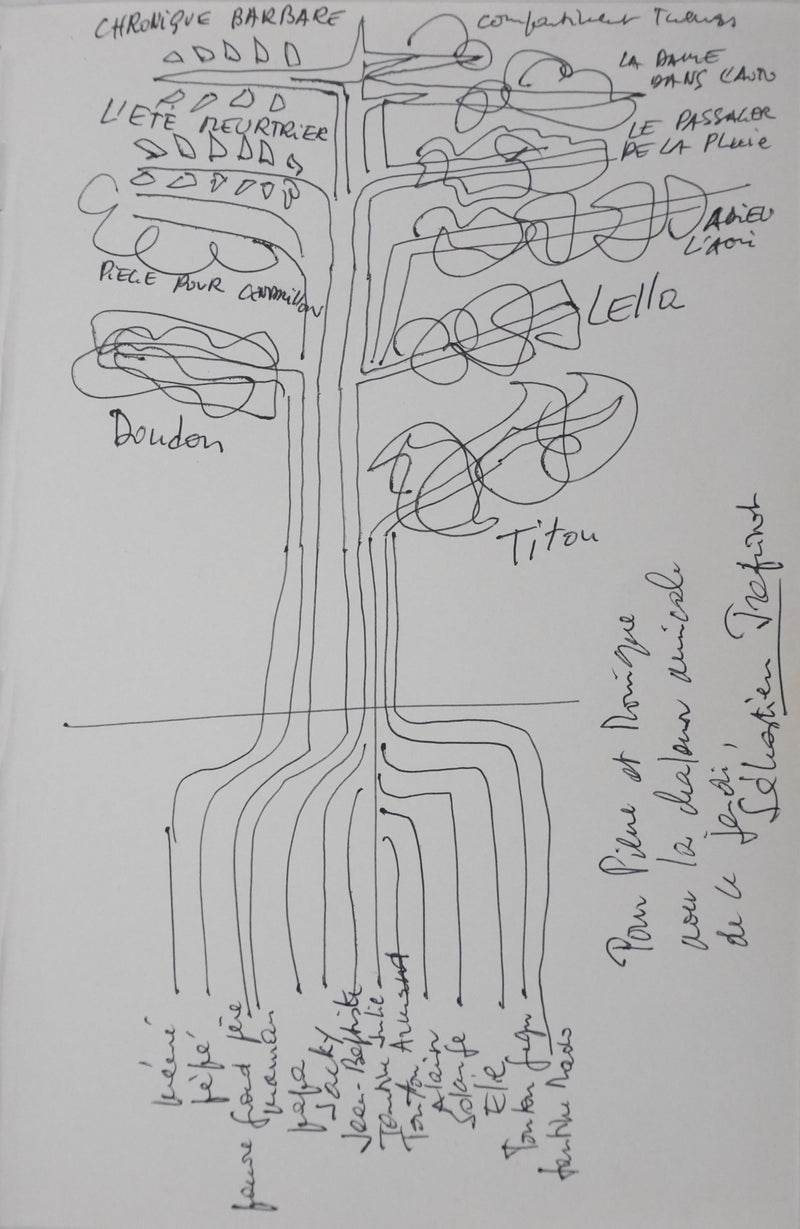 CHRONIQUE BARBARE
compartiment Tueurs
LA DAME
DANS L'AUTO
L'ETÉ MEURTRIER
LE PASSAGER
DE LA PLUIE
ADIEU
L'AMI
PIEGE POUR CENDRILLON
LELLA
Doudou
Titou
Pour Pierre et Monique
avec la chaleur amicale
de ce jeudi,
Sébastien
mémé
pépé
pauvre grand père
maman
papa
Jacky
Jean-Baptiste
Tantine Julie
Tonton Armand
Alain
Solange
Elie
Tonton
tantine Mado